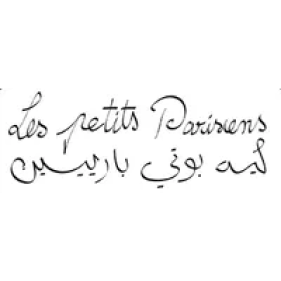 Les petits Parisiens
ليه بوتي باريسيين